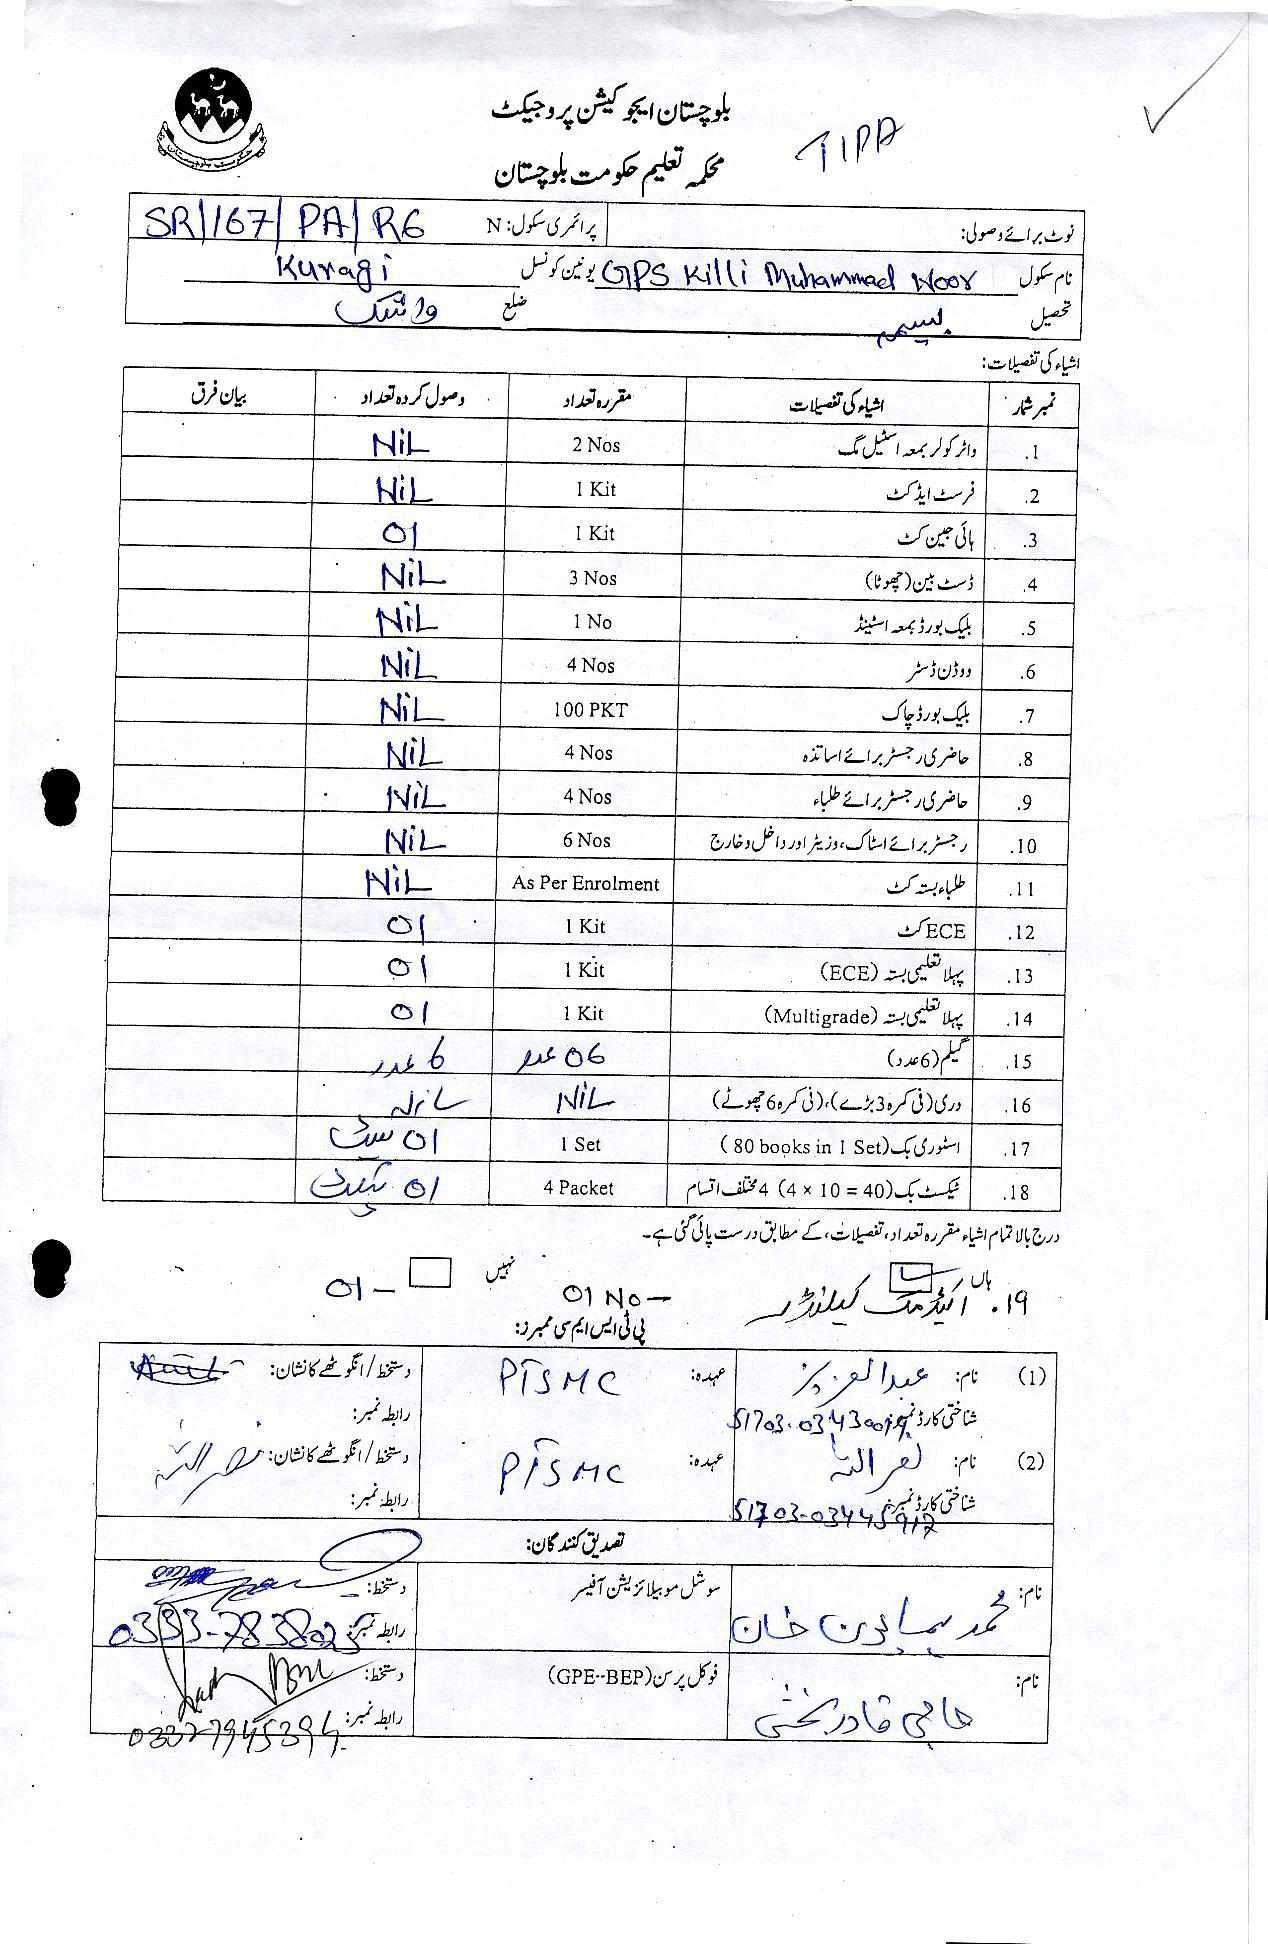 بلوچستان ایجوکیشن پروجیکٹ
محکمہ تعلیم حکومت بلوچستان
حکومت بلوچستان
نوٹ برائے وصولی: پرائمری سکول: N SR/167/PA/R6
نام سکول GPS Killi Muhammad Noor یونین کونسل Kuragi
تحصیل بسیمہ ضلع واشک
اشیاء کی تفصیلات:
نمبر شمار اشیاء کی تفصیلات مقررہ تعداد وصول کردہ تعداد بیان فرق
1. واٹر کولر بمعہ اسٹیل مگ 2 Nos NiL
2. فرسٹ ایڈ کٹ 1 Kit NiL
3. ہائی جین کٹ 1 Kit 01
4. ڈسٹ بین (چھوٹا) 3 Nos NiL
5. بلیک بورڈ بمعہ اسٹینڈ 1 No NiL
6. ووڈن ڈسٹر 4 Nos NiL
7. بلیک بورڈ چاک 100 PKT NiL
8. حاضری رجسٹر برائے اساتذہ 4 Nos NiL
9. حاضری رجسٹر برائے طلباء 4 Nos NiL
10. رجسٹر برائے اسٹاک، وزیٹر اور داخل و خارج 6 Nos NiL
11. طلباء بستہ کٹ As Per Enrolment NiL
12. ECE کٹ 1 Kit 01
13. پہلا تعلیمی بستہ (ECE) 1 Kit 01
14. پہلا تعلیمی بستہ (Multigrade) 1 Kit 01
15. گیلم (6 عدد) 06 عدد 6 عدد
16. دری (فی کمرہ 3 بڑے)، (فی کمرہ 6 چھوٹے) NiL NiL
17. اسٹوری بک (80 books in 1 Set) 1 Set 01 سیٹ
18. ٹیکسٹ بک (4 × 10 = 40) 4 مختلف اقسام 4 Packet 01 پیکٹ
درج بالا تمام اشیاء مقررہ تعداد، تفصیلات، کے مطابق درست پائی گئی ہے۔
ہاں نہیں
19. اکیڈمک کیلنڈر 01 No — 01 —
پی ٹی ایس ایم سی ممبرز:
(1) نام: عبدالعزیز عہدہ: PTSMC دستخط/انگوٹھے کا نشان:
شناختی کارڈ نمبر: رابطہ نمبر:
(2) نام: نصر اللہ عہدہ: PTSMC دستخط/انگوٹھے کا نشان: نصر اللہ
شناختی کارڈ نمبر: رابطہ نمبر:
تصدیق کنندگان:
نام: محمد ہمایون خان سوشل موبیلائزیشن آفیسر دستخط:
رابطہ نمبر: 0333-7838025
نام: حاجی قادر بخش فوکل پرسن (GPE--BEP) دستخط:
رابطہ نمبر: 0332-7945394